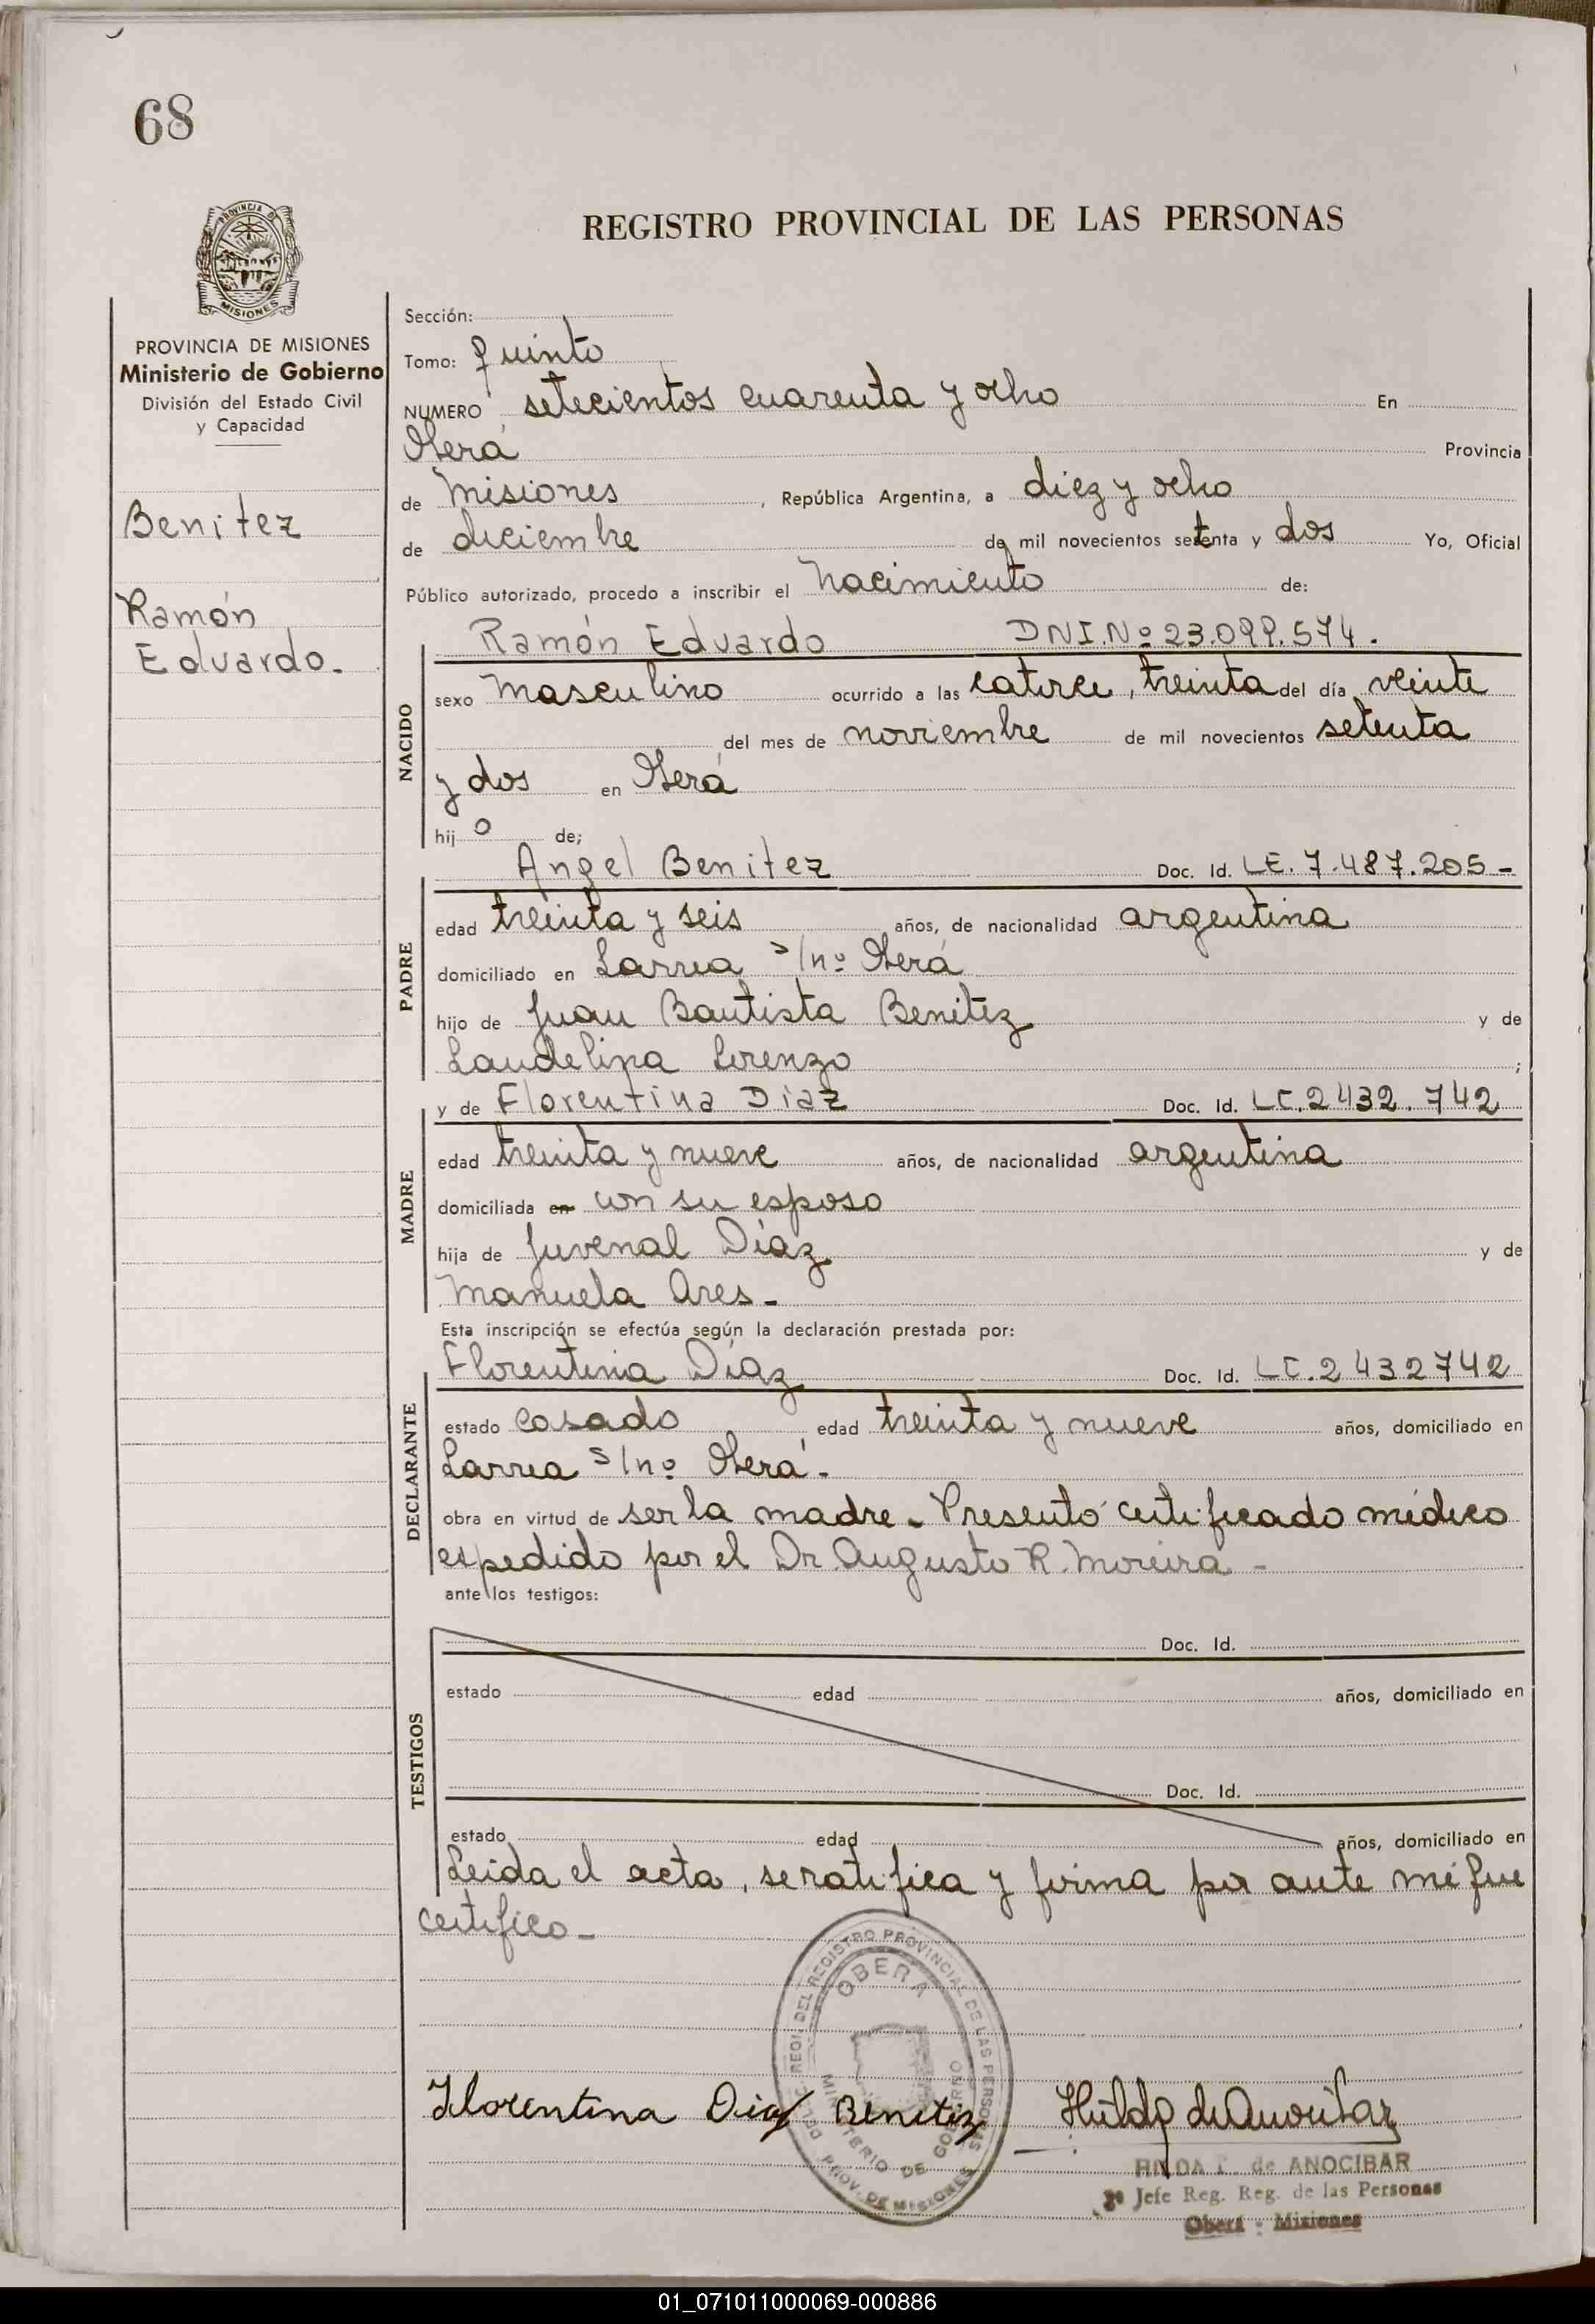 68
REGISTRO PROVINCIAL DE LAS PERSONAS
PROVINCIA DE MISIONES
MISIONES
PROVINCIA DE MISIONES
Ministerio de Gobierno
División del Estado Civil
y Capacidad
Benitez
Ramón
Eduardo.
Sección:
Tomo: quinto
NUMERO setecientos cuarenta y ocho En
Oberá Provincia
de Misiones, República Argentina, a diez y ocho
de diciembre de mil novecientos setenta y dos Yo, Oficial
Público autorizado, procedo a inscribir el Nacimiento de:
Ramón Eduardo DNI.Nº 23.099.574.
NACIDO
sexo Masculino ocurrido a las catorce, treinta del día veinte
del mes de noviembre de mil novecientos setenta
y dos en Oberá
hijo de;
Angel Benitez Doc. Id. LE. 7.487.205-
PADRE
edad treinta y seis años, de nacionalidad argentina
domiciliado en Larrea s/nº Oberá
hijo de Juan Bautista Benitez y de
Laudelina Lorenzo ;
y de Florentina Diaz Doc. Id. LC.2432.742
MADRE
edad treinta y nueve años, de nacionalidad argentina
domiciliada en con su esposo
hija de Juvenal Díaz y de
Manuela Ares-
Esta inscripción se efectúa según la declaración prestada por:
Florentina Díaz Doc. Id. LC.2432742
DECLARANTE
estado casado edad treinta y nueve años, domiciliado en
Larrea s/nº Oberá-
obra en virtud de ser la madre- Presentó certificado médico
espedido por el Dr. Augusto R. Moreira-
ante los testigos:
TESTIGOS
Doc. Id.
estado edad años, domiciliado en
Doc. Id.
estado edad años, domiciliado en
Leida el acta, se ratifica y firma por ante mí que
certifico-
REGISTRO PROVINCIAL DE LAS PERSONAS
OBERA
MINISTERIO DE GOBIERNO
PROV. DE MISIONES
Florentina Diaz Benitez
Hilda de Anocibar
HILDA de ANOCIBAR
Jefe Reg. Reg. de las Personas
Oberá - Misiones
01_071011000069-000886